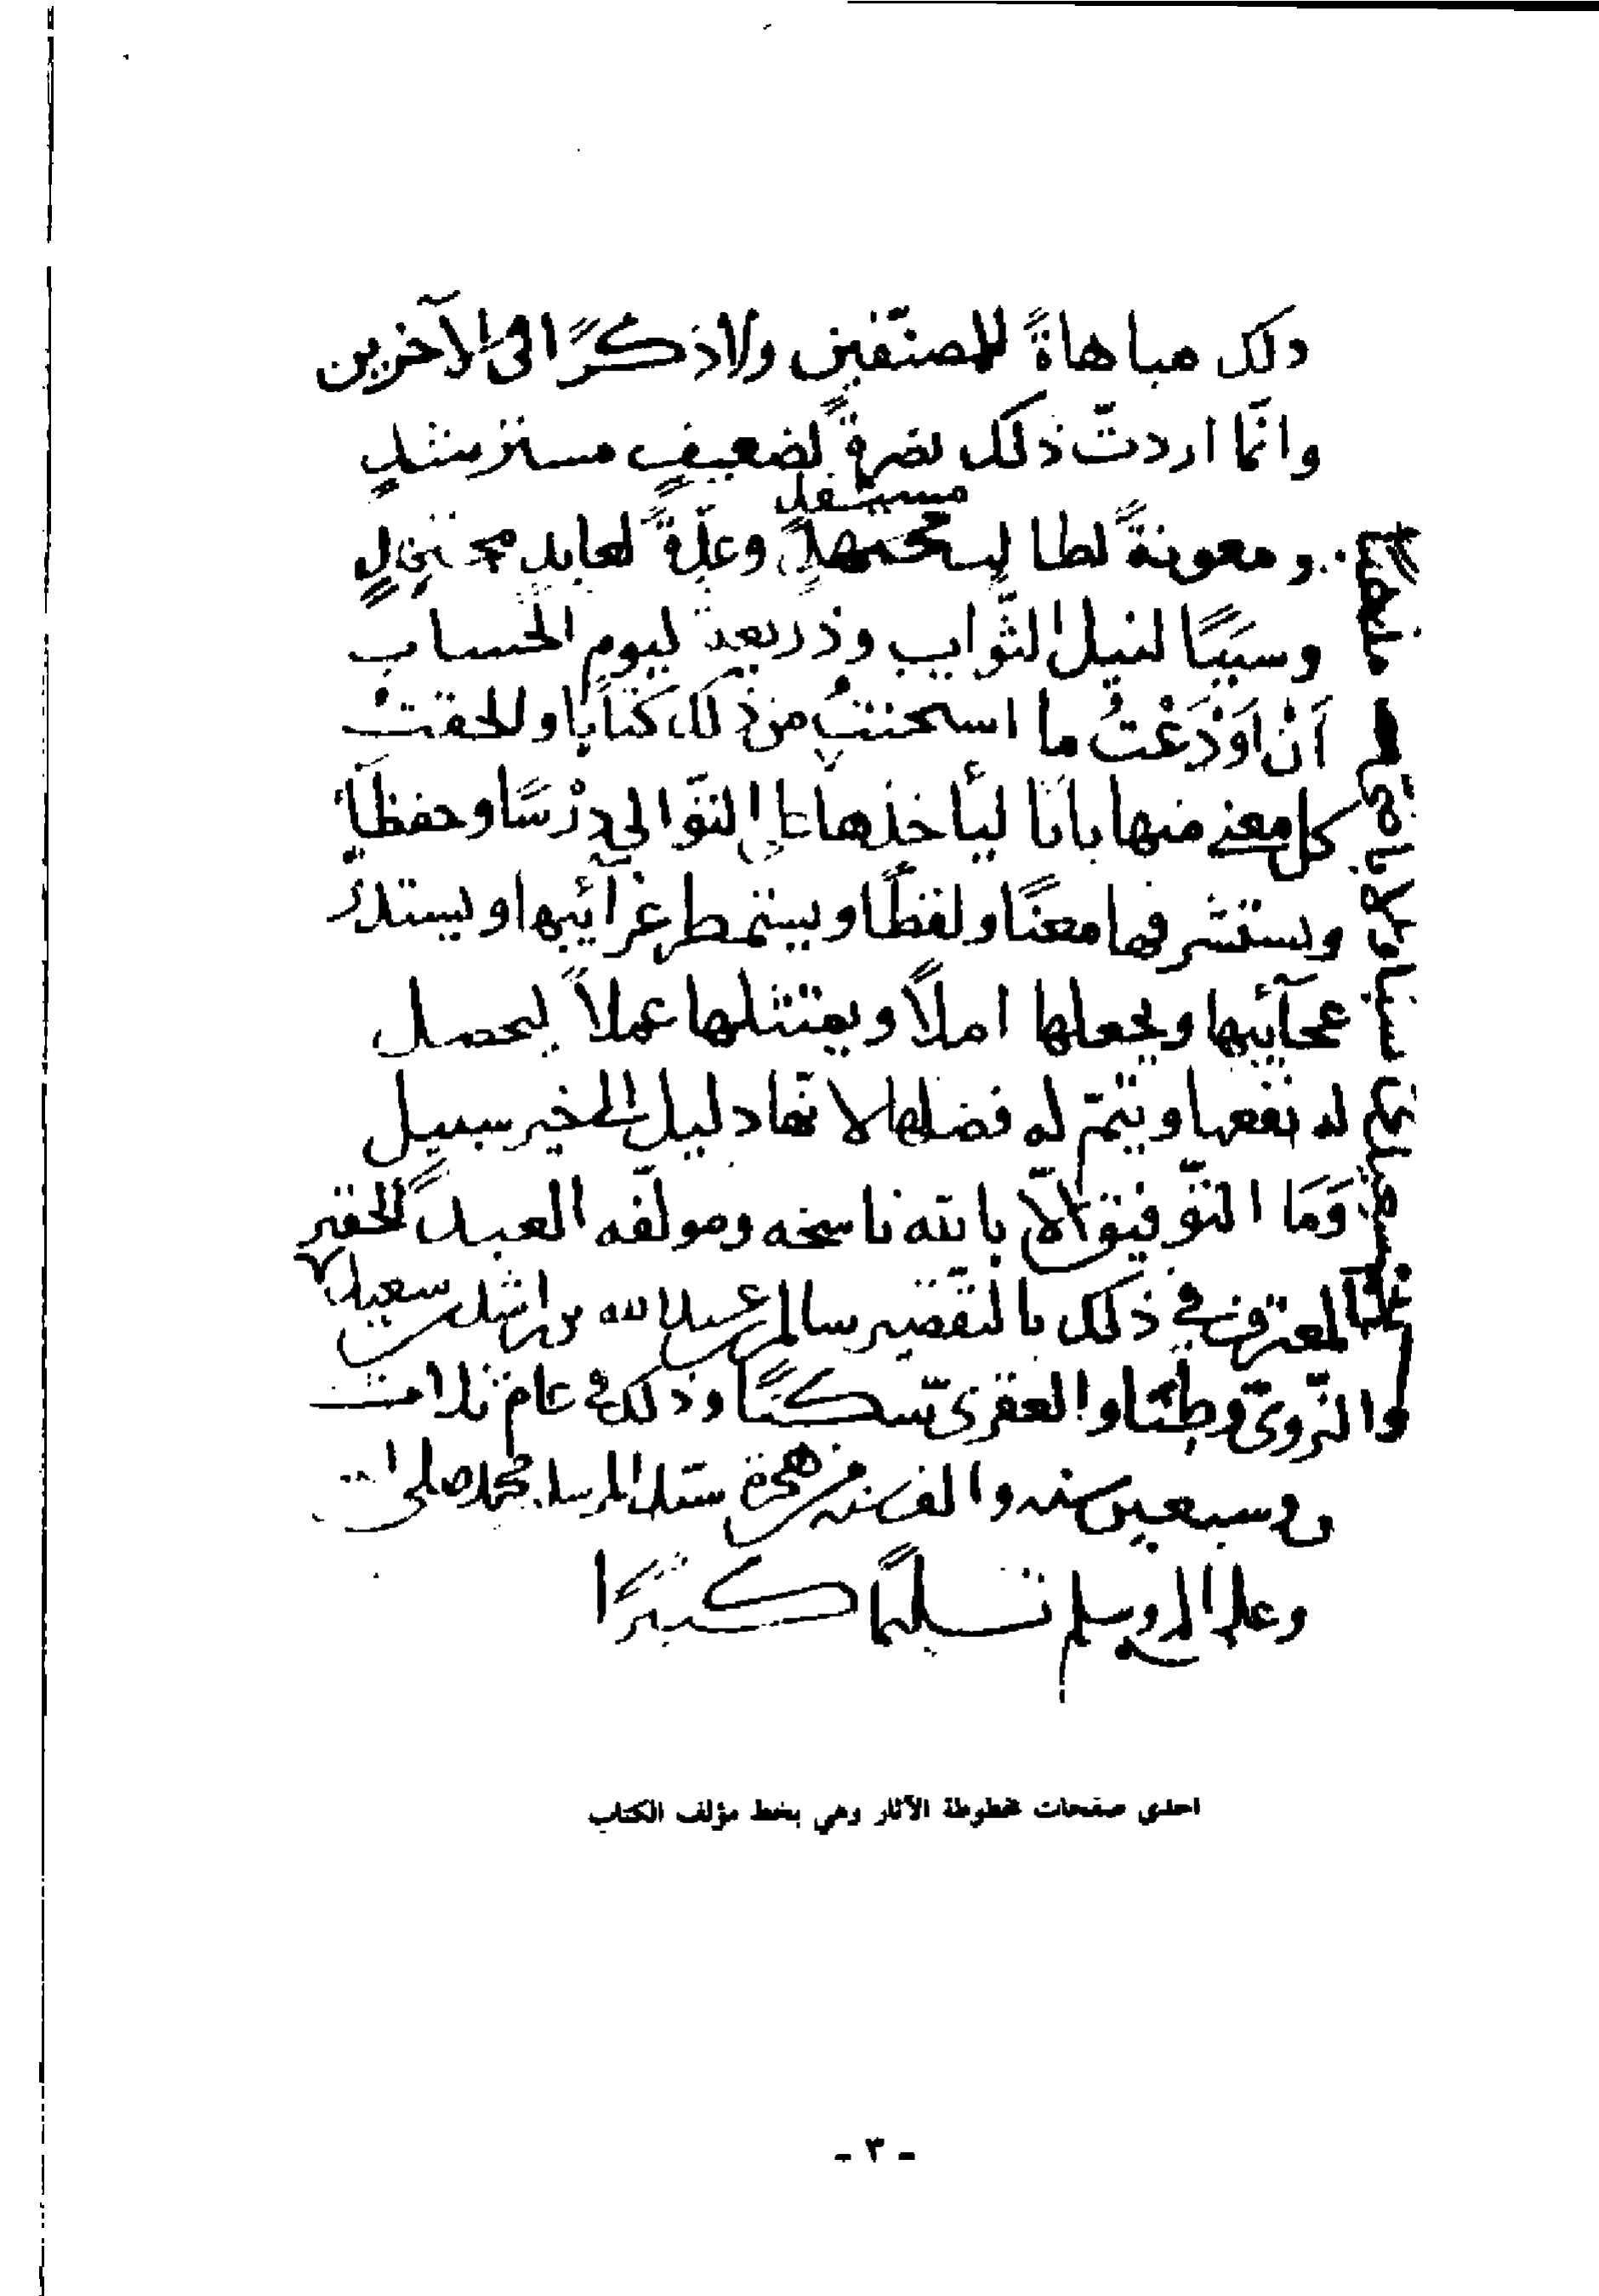 ذلك مباهاةً للمصنّفين ولا ذكرًا في الآخرين
وانّما اردتّ ذلك نصرةً لضعيفٍ مسترشدٍ
مستفيد
ومعونةً لطالب مجتهدٍ وعدّةً لعابدٍ
وسببًا لنيل الثّواب وذريعة ليوم الحساب
اَنْ اَوْدَعْتُ ما استحسنتُ من ذلك كتابًا والحقتُ
كل معنى منها بابًا ليأخذها على التوّالي درْسًا وحفظًا
ويستشرفها معنًا ولفظًا ويستمطر غرآئبها ويستدرّ
عجآئبها ويجعلها املاً ويمتثلها عملاً ليحصل
له نفعها ويتمّ له فضلها لانّها دليل الخير سبيل
وَمَا التوّفيق الاّ بالله ناسخه ومولّفه العبد الحقير
المعترف في ذلك بالتقّصير سالم بن عبدالله بن راشد بن سعيد
والنّزويّ وطنًا والعقريّ سكنًا وذلك في عام ثلاث
وسبعين سنه والف سنه من هجرة سيّد المرسلين محمد صلى الله
وعلى اله وسلم تسليمًا كثيرًا
احدى صفحات مخطوطة الآثار وهي بخط مؤلف الكتاب
- ٣ -